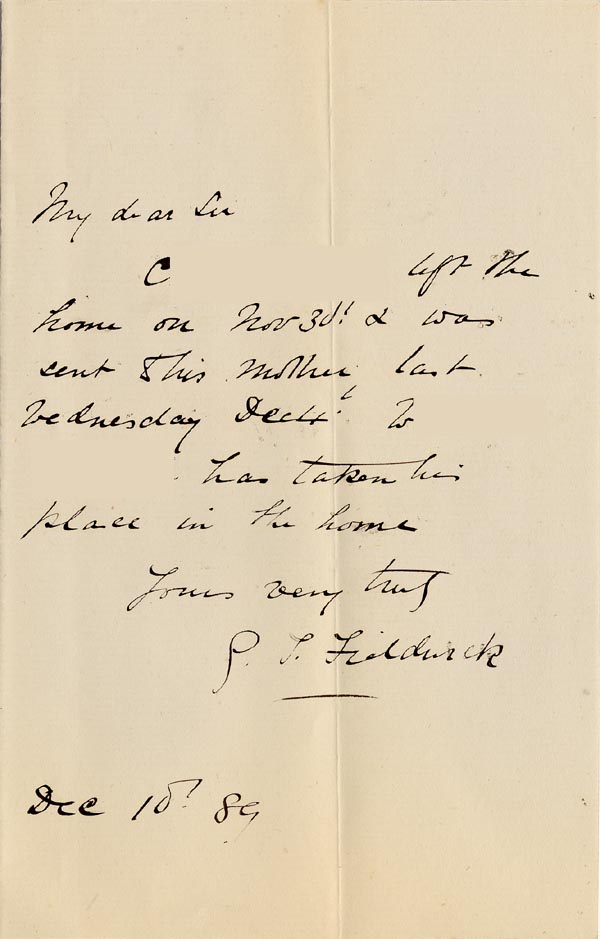 My dear Sir
C left the
home on Nov 30t & was
sent to his mother last
Wednesday Dec 4t W
has taken his
place in the home
Yours very truly
G. S. Fieldwick
Dec 10t 89